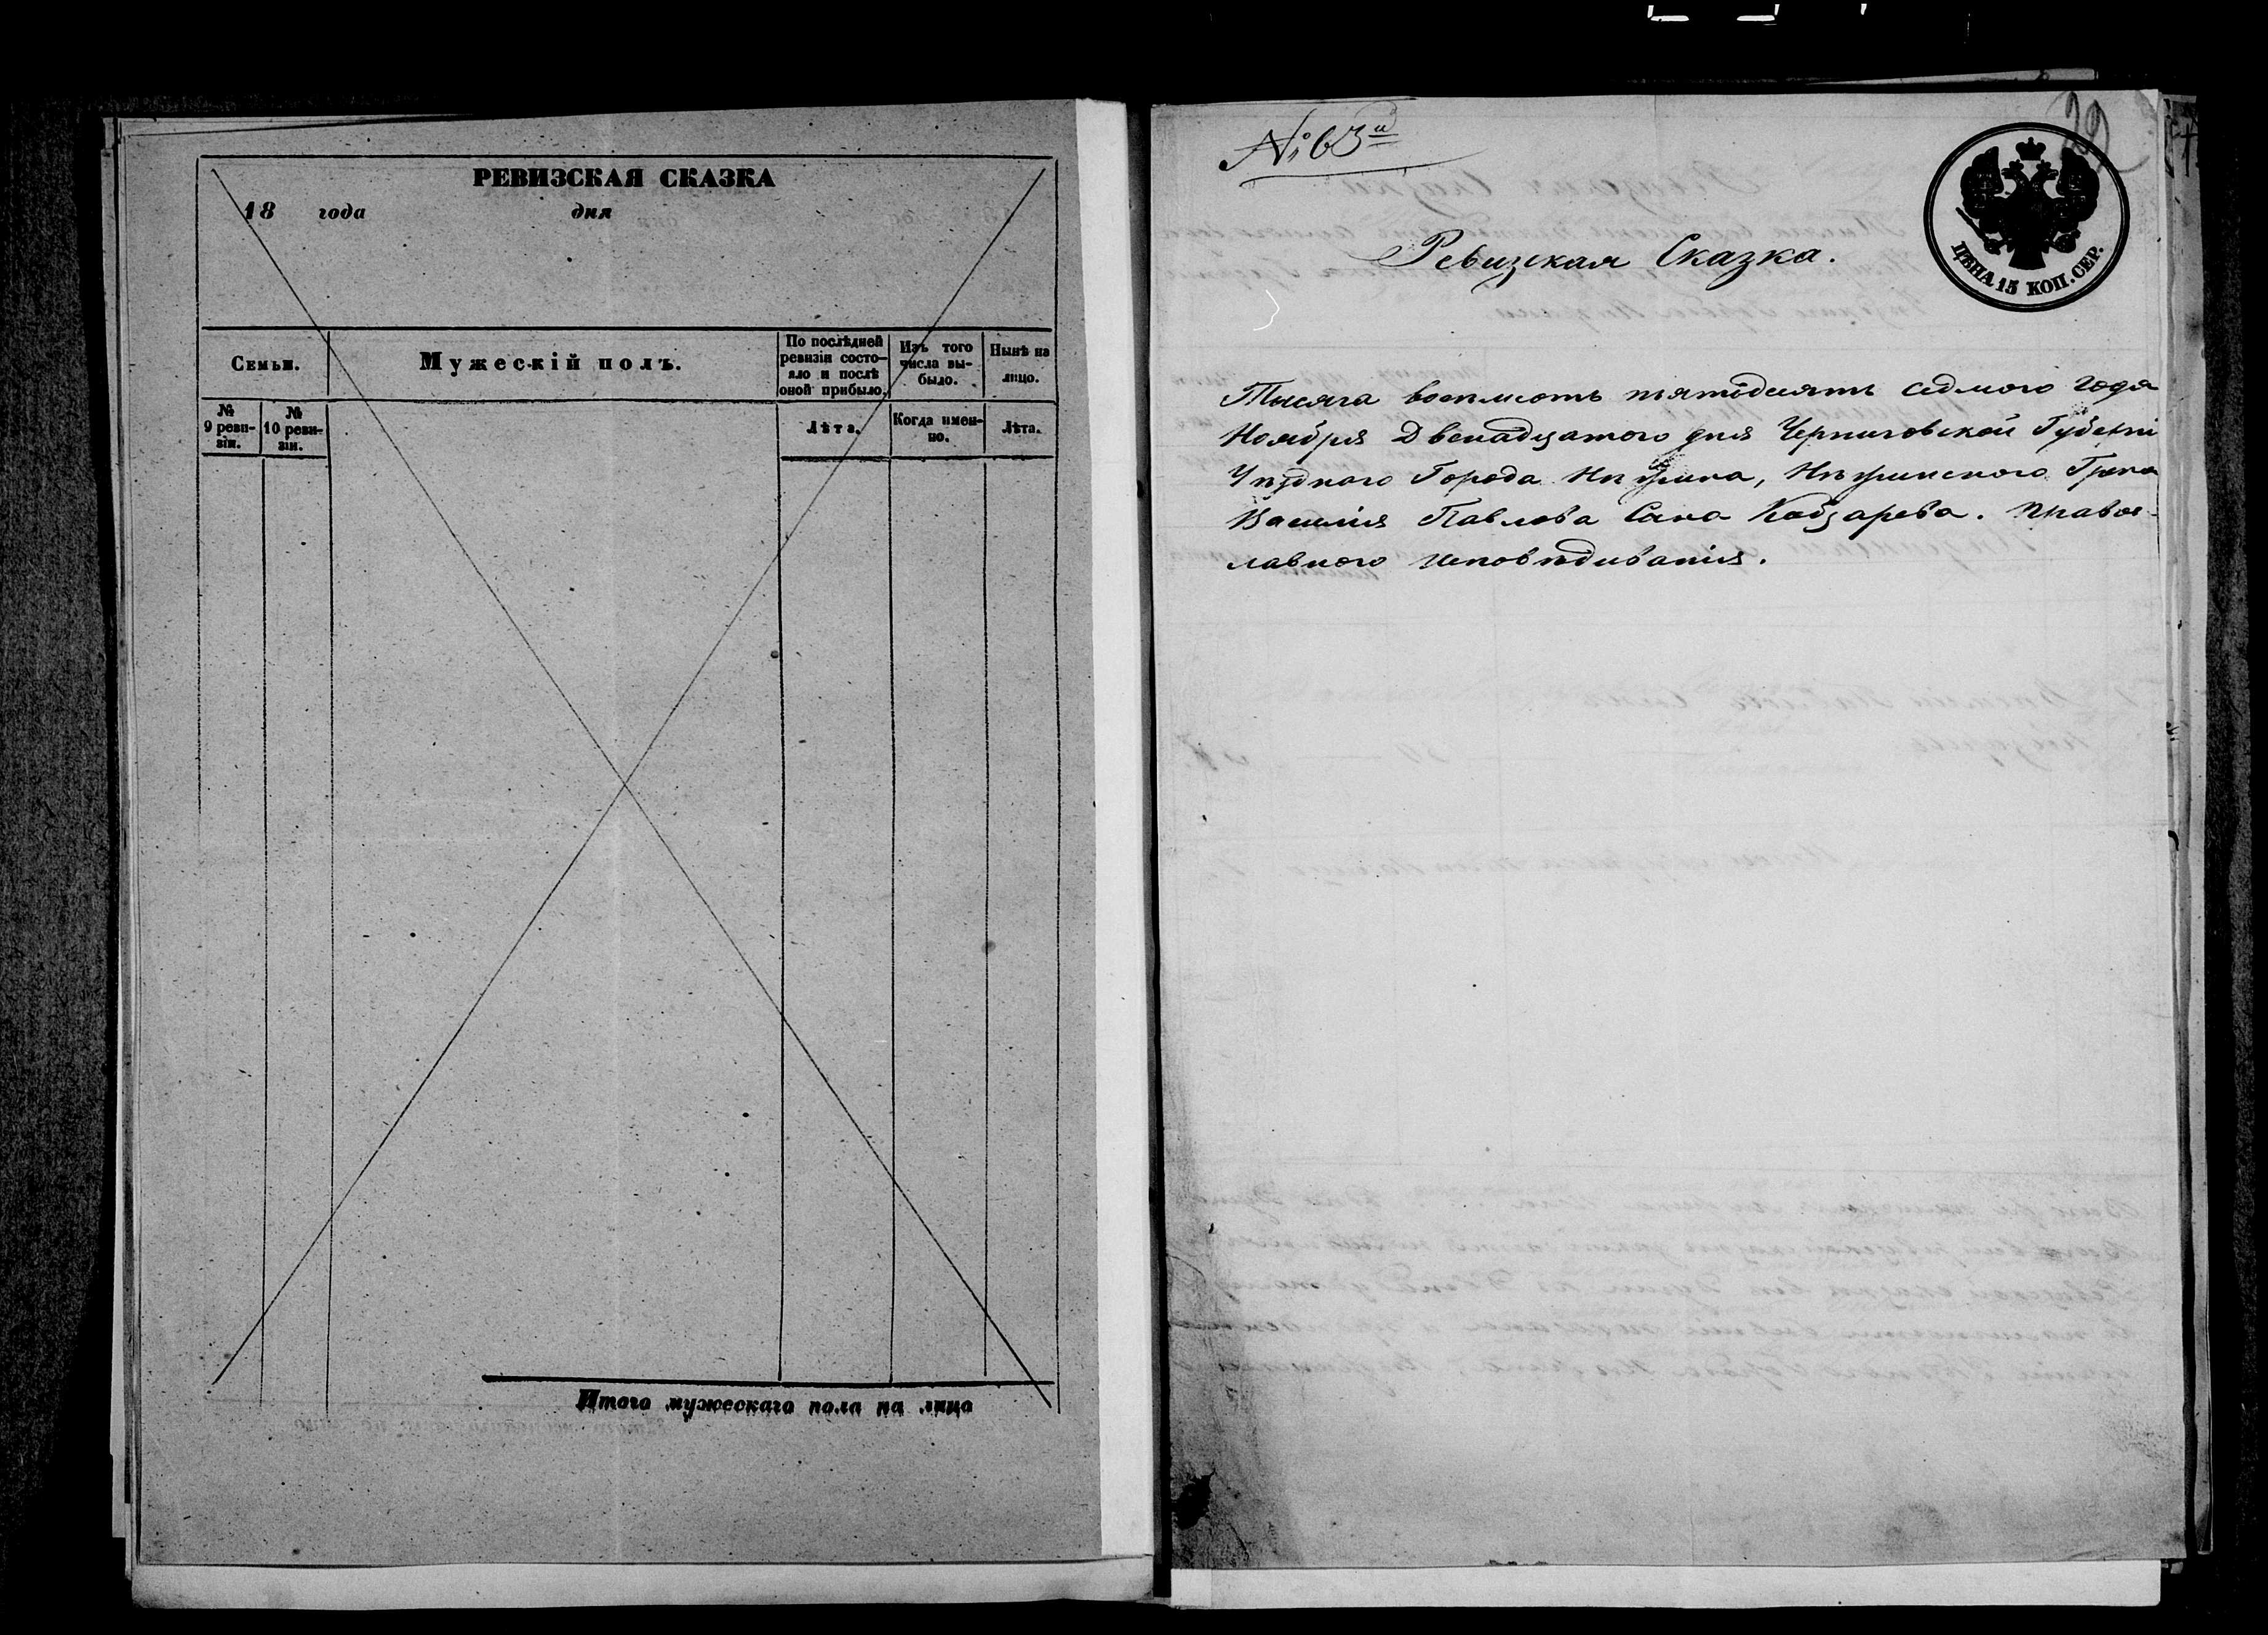 РЕВИЗСКАЯ СКАЗКА
18 года дня
Семьи.
Мужескій полъ.
По послѣдней
ревизіи состо-
яло и послѣ
оной прибыло.
Изъ того
числа вы-
было.
Нынѣ на
лицо.
№
9 реви-
зіи.
№
10 реви-
зіи.
Лѣта.
Когда имен-
но.
Лѣта.
Итого мужескаго пола на лицо
№ 63й
29
ЦѢНА 15 КОП. СЕР.
Ревизская Сказка.
Тысяча восемьсотъ пятьдесятъ седмого года
Ноября Двенадцатого дня Черниговской Губерніи
Уѣздного Города Нѣжина, Нѣжинского Грека
Василія Павлова Сына Кобзарева. Правос-
лавного исповѣдиванія.